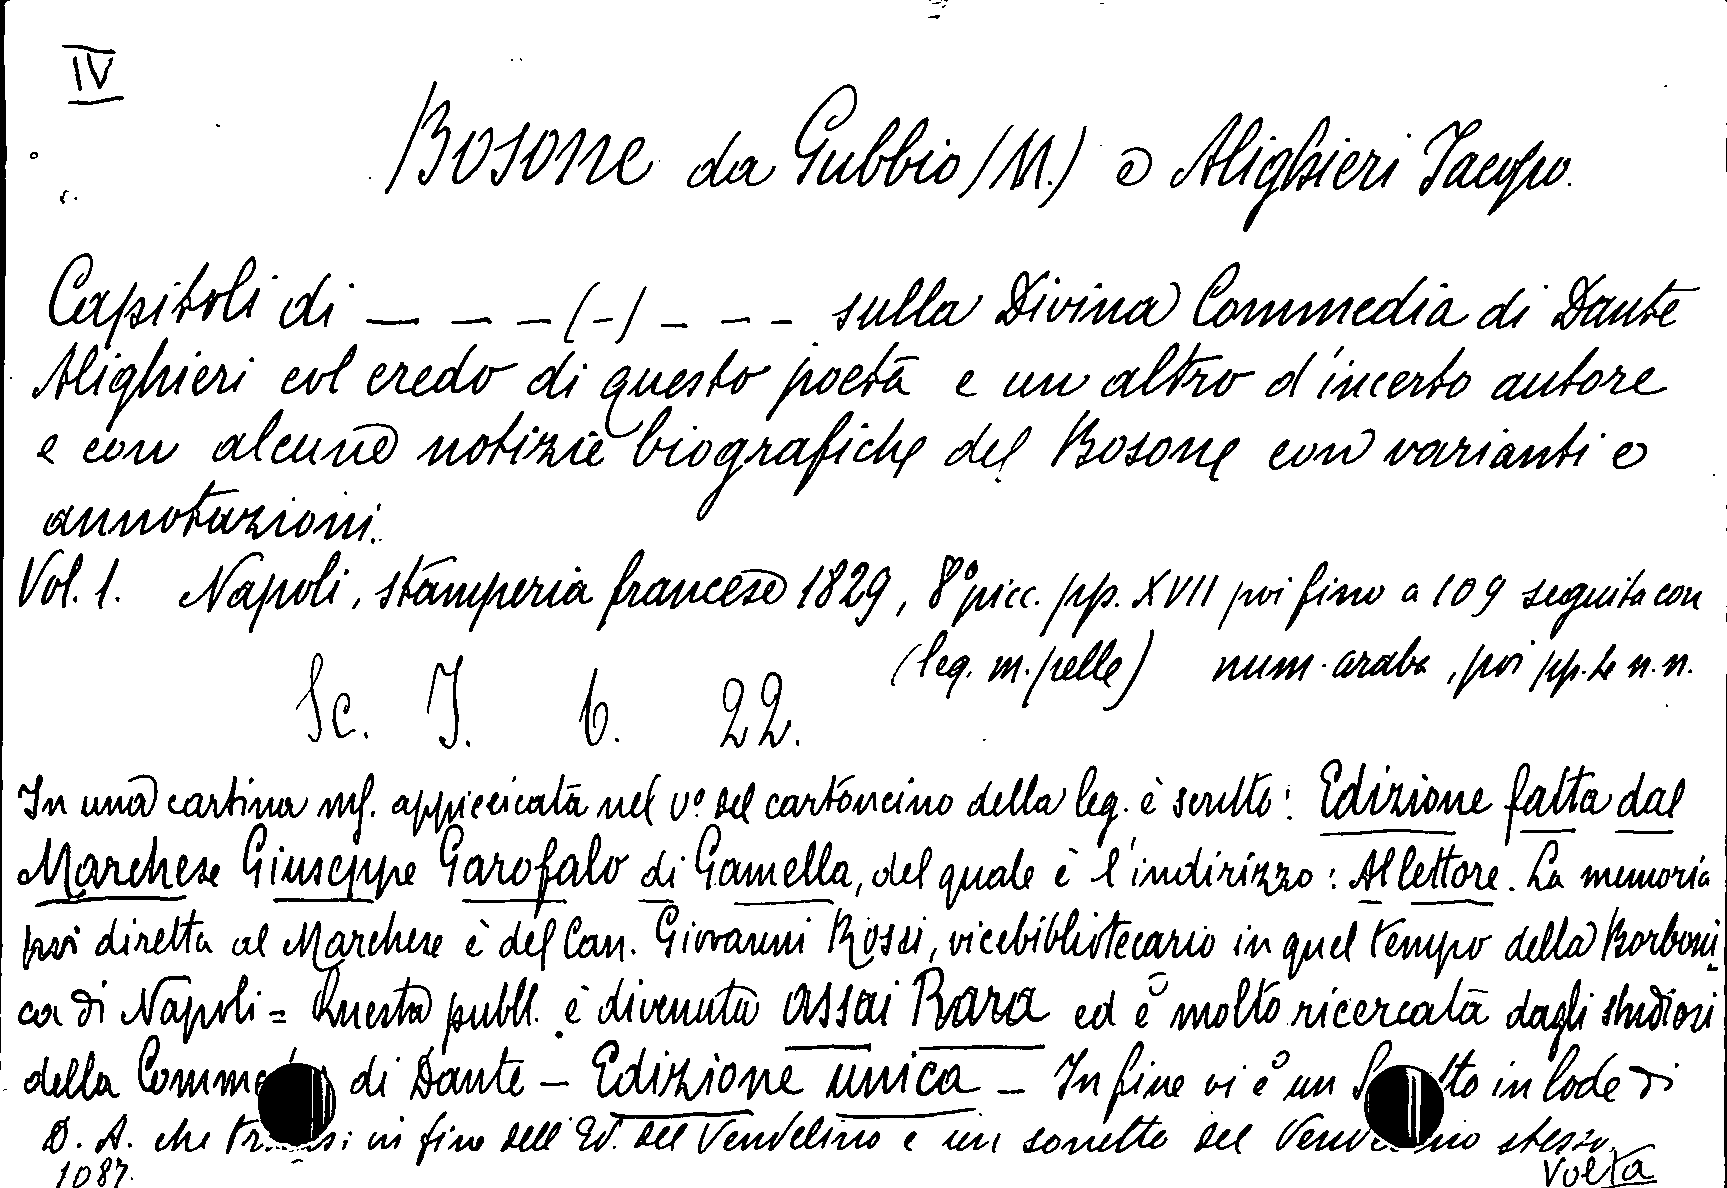 IV
Bosone da Gubbio (M.) e Alighieri Jacopo.
Capitoli di _ _ _ (-) _ _ _ sulla Divina Commedia di Dante
Alighieri col credo di questo poeta e un altro d'incerto autore
e con alcune notizie biografiche del Bosone con varianti e
annotazioni.
Vol. 1. Napoli, stamperia francese 1829, 8° picc. pp. XVII poi fino a 109 seguita con
(leg. m. pelle) num. araba, poi pp. n. n.
Sc. I. 6. 22.
In una cartina appiccicata nel v° del cartoncino della leg. è scritto: Edizione fatta dal
Marchese Giuseppe Garofalo di Gamella, del quale è l'indirizzo: Al lettore. La memoria
poi diretta al Marchese è del Can. Giovanni Rossi, vicebibliotecario in quel tempo della Borboni-
ca di Napoli = Questa pubbl. è divenuta assai Rara ed è molto ricercata dagli studiosi
della di Dante - Edizione unica - In fine vi è un in lode di
D. A. che in fine dell'Ed. del Vendelino e un sonetto del stesso.
1087. Volta